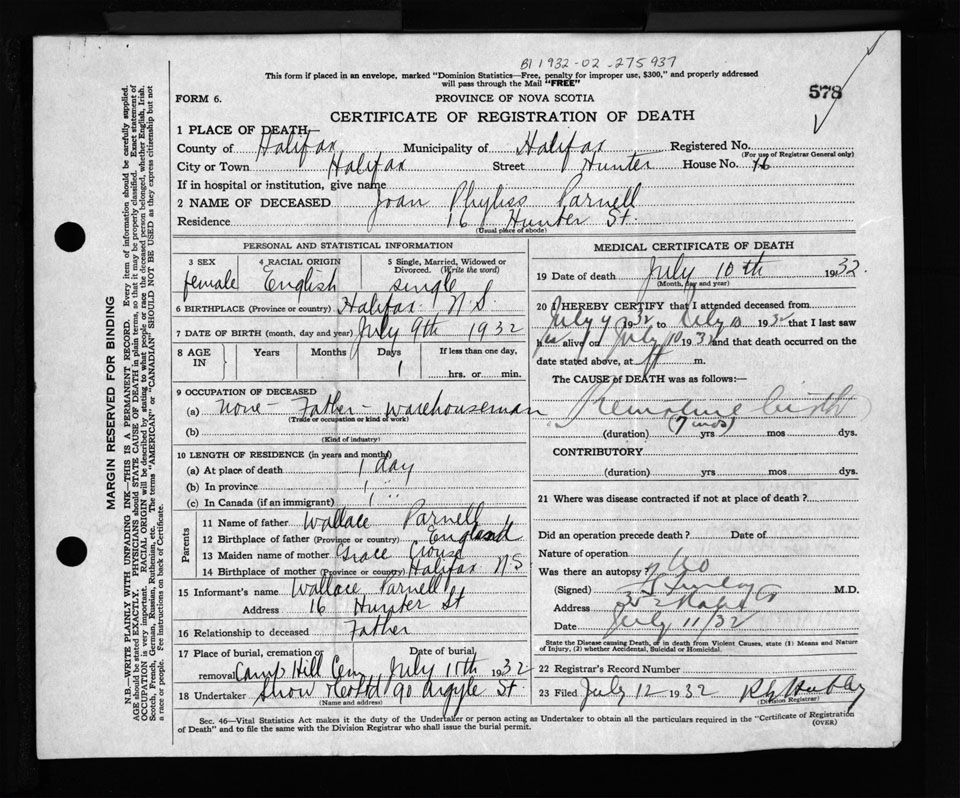 BI 1932-02-275937
This form if placed in an envelope, marked "Dominion Statistics—Free, penalty for improper use, $300," and properly addressed
will pass through the Mail "FREE"
578
FORM 6.
PROVINCE OF NOVA SCOTIA
CERTIFICATE OF REGISTRATION OF DEATH
1 PLACE OF DEATH—
County of Halifax Municipality of Halifax Registered No.
(For use of Registrar General only)
City or Town Halifax Street Hunter House No. 16
If in hospital or institution, give name
2 NAME OF DECEASED Joan Phyliss Parnell
Residence 16 Hunter St.
(Usual place of abode)
PERSONAL AND STATISTICAL INFORMATION
3 SEX 4 RACIAL ORIGIN 5 Single, Married, Widowed or
Divorced. (Write the word)
female English single
6 BIRTHPLACE (Province or country) Halifax N.S.
7 DATE OF BIRTH (month, day and year) July 9th 1932
8 AGE IN Years Months Days If less than one day,
1
hrs. or min.
9 OCCUPATION OF DECEASED
(a) none - Father - warehouseman
(Trade or occupation or kind of work)
(b)
(Kind of industry)
10 LENGTH OF RESIDENCE (in years and months)
(a) At place of death 1 day
(b) In province 1 "
(c) In Canada (if an immigrant)
Parents
11 Name of father Wallace Parnell
12 Birthplace of father (Province or country) England
13 Maiden name of mother Grace Crouse
14 Birthplace of mother (Province or country) Halifax N.S
15 Informant's name Wallace Parnell
Address 16 Hunter St
16 Relationship to deceased Father
17 Place of burial, cremation or Date of burial,
removal Camp Hill Cem July 11th 1932
18 Undertaker Snow & Co Ltd 90 Argyle St.
(Name and address)
MEDICAL CERTIFICATE OF DEATH
19 Date of death July 10th 1932.
(Month, day and year)
20 I HEREBY CERTIFY that I attended deceased from
July 9 1932 to July 10 1932 that I last saw
her alive on July 10 1932 and that death occurred on the
date stated above, at m.
The CAUSE OF DEATH was as follows:—
Premature birth
(7 mos)
(duration) yrs mos dys.
CONTRIBUTORY
(duration) yrs mos dys.
21 Where was disease contracted if not at place of death?
Did an operation precede death? Date of
Nature of operation
Was there an autopsy? No
(Signed) M.D.
Address
Date July 11/32
State the Disease causing Death, or in death from Violent Causes, state (1) Means and Nature
of Injury, (2) whether Accidental, Suicidal or Homicidal.
22 Registrar's Record Number
23 Filed July 12 1932
(Division Registrar)
Sec. 46—Vital Statistics Act makes it the duty of the Undertaker or person acting as Undertaker to obtain all the particulars required in the "Certificate of Registration
of Death" and to file the same with the Division Registrar who shall issue the burial permit.
(OVER)
MARGIN RESERVED FOR BINDING
N.B.—WRITE PLAINLY WITH UNFADING INK—THIS IS A PERMANENT RECORD. Every item of information should be carefully supplied.
AGE should be stated EXACTLY. PHYSICIANS should STATE CAUSE OF DEATH in plain terms, so that it may be properly classified. Exact statement of
OCCUPATION is very important. RACIAL ORIGIN will be described by stating to what people or race the deceased person belonged, whether English, Irish,
Scotch, French, German, Russian, Ruthenian, etc. The terms "AMERICAN" or "CANADIAN" SHOULD NOT BE USED as they express citizenship but not
a race or people. Fee instructions on back of Certificate.